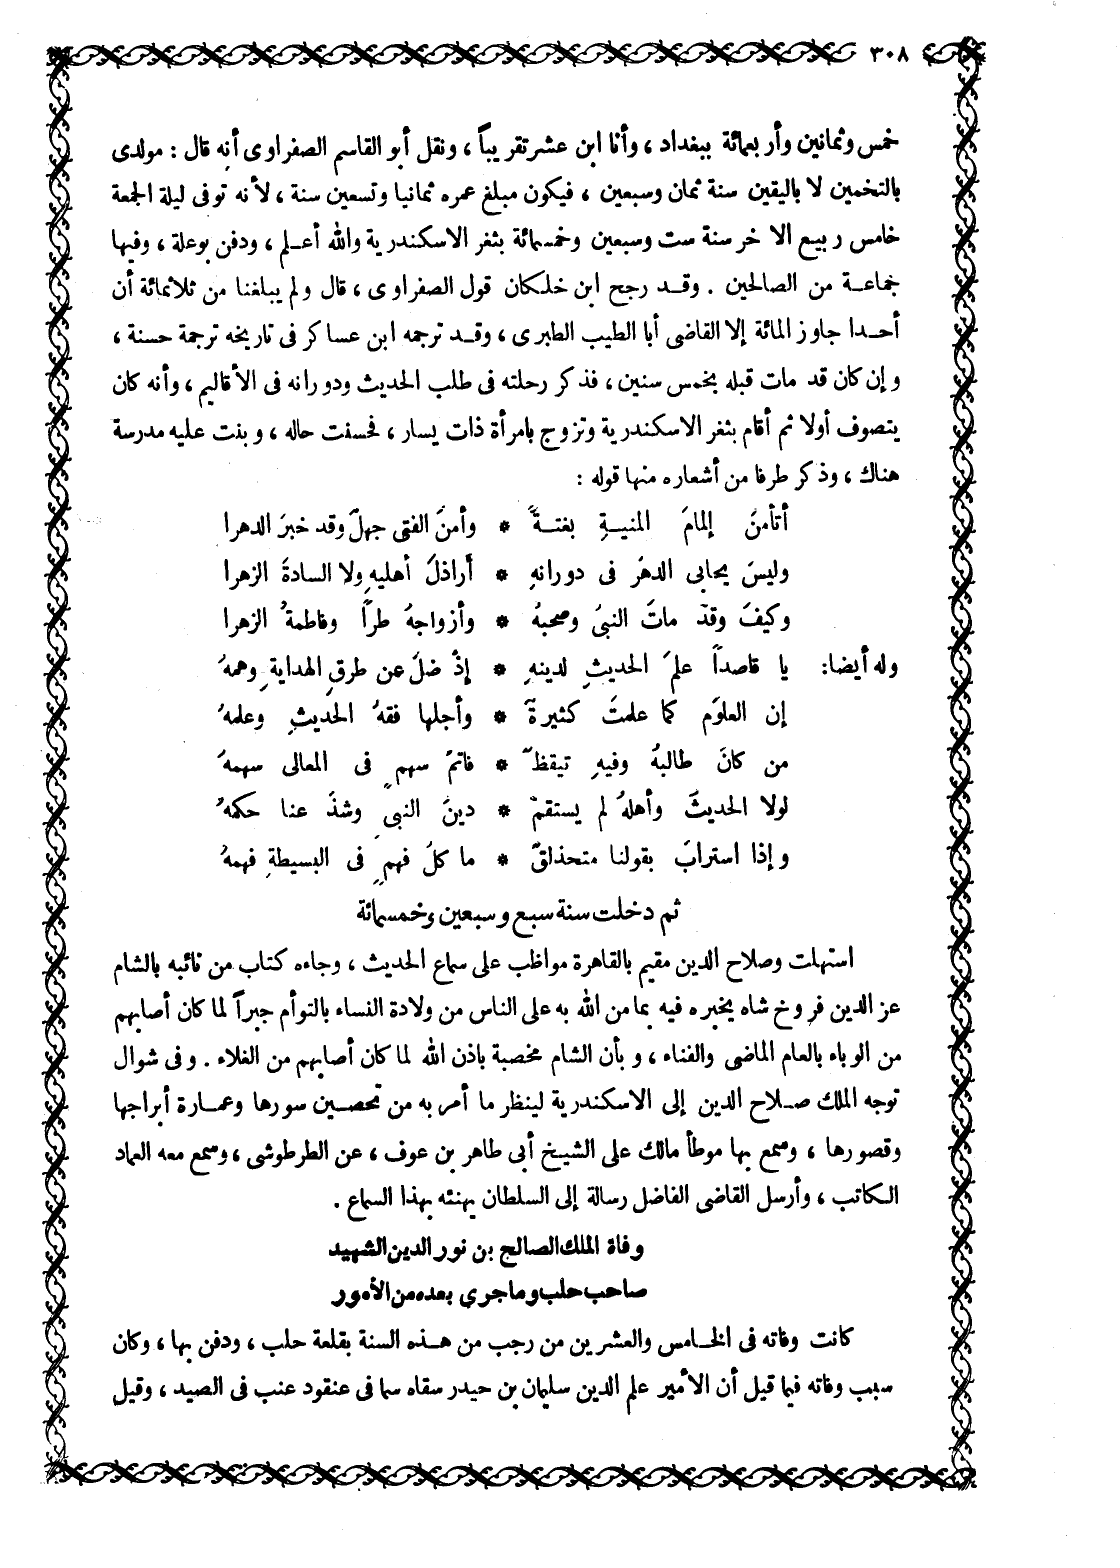 ٣٠٨
خمس وثمانين وأربعمائة ببغداد ، وأنا ابن عشر تقريباً ، ونقل أبو القاسم الصفراوى أنه قال : مولدى
بالتخمين لا باليقين سنة ثمان وسبعين ، فيكون مبلغ عمره ثمانيا وتسعين سنة ، لأنه توفى ليلة الجمعة
خامس ربيع الاخر سنة ست وسبعين وخمسمائة بثغر الاسكندرية والله أعلم ، ودفن بوعلة ، وفيها
جماعة من الصالحين . وقد رجح ابن خلكان قول الصفراوى ، قال ولم يبلغنا من ثلاثمائة أن
أحدا جاوز المائة إلا القاضى أبا الطيب الطبرى ، وقد ترجمه ابن عساكر فى تاريخه ترجمة حسنة ،
وإن كان قد مات قبله بخمس سنين ، فذكر رحلته فى طلب الحديث ودورانه فى الأقاليم ، وأنه كان
يتصوف أولا ثم أقام بثغر الاسكندرية وتزوج بامرأة ذات يسار ، فحسنت حاله ، وبنت عليه مدرسة
هناك ، وذكر طرفا من أشعاره منها قوله :
أتأمنَ إلمامَ المنيةِ بغتةً * وأمنَ الفتى جهلٌ وقد خبرَ الدهرا
وليسَ يحابى الدهرُ فى دورانهِ * أراذلَ أهليهِ ولا السادةَ الزهرا
وكيفَ وقدْ ماتَ النبىُ وصحبهُ * وأزواجهُ طراً وفاطمةُ الزهرا
وله أيضا: يا قاصداً علمَ الحديثِ لدينهِ * إذْ ضلَ عن طرقِ الهدايةِ وهمهُ
إن العلومَ كما علمتَ كثيرةٌ * وأجلها فقهُ الحديثِ وعلمهُ
من كانَ طالبهُ وفيهِ تيقظٌ * فاتمُ سهمٍ فى المعالى سهمهُ
لولا الحديثَ وأهلهُ لم يستقمْ * دينَ النبىِ وشذَ عنا حكمهُ
وإذا استرابَ بقولنا متحذلقٌ * ما كلُ فهمٍ فى البسيطةِ فهمهُ
ثم دخلت سنة سبع وسبعين وخمسمائة
استهلت وصلاح الدين مقيم بالقاهرة مواظب على سماع الحديث ، وجاءه كتاب من نائبه بالشام
عز الدين فروخ شاه يخبره فيه بما من الله به على الناس من ولادة النساء بالتوأم جبراً لما كان أصابهم
من الوباء بالعام الماضى والفناء ، وبأن الشام مخصبة باذن الله لما كان أصابهم من الغلاء . وفى شوال
توجه الملك صلاح الدين إلى الاسكندرية لينظر ما أمر به من تحصين سورها وعمارة أبراجها
وقصورها ، وسمع بها موطأ مالك على الشيخ أبى طاهر بن عوف ، عن الطرطوشى ، وسمع معه العماد
الكاتب ، وأرسل القاضى الفاضل رسالة إلى السلطان يهنئه بهذا السماع .
وفاة الملك الصالح بن نور الدين الشهيد
صاحب حلب وما جرى بعده من الأمور
كانت وفاته فى الخامس والعشرين من رجب من هذه السنة بقلعة حلب ، ودفن بها ، وكان
سبب وفاته فيما قيل أن الأمير علم الدين سليمان بن حيدر سقاه سما فى عنقود عنب فى الصيد ، وقيل